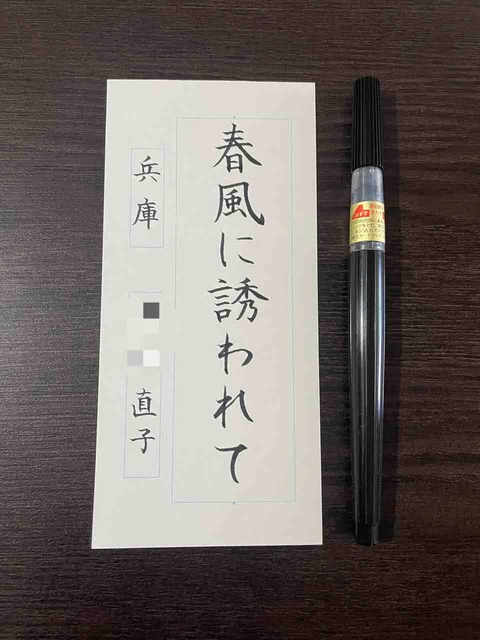 春風に誘われて
兵庫
直子